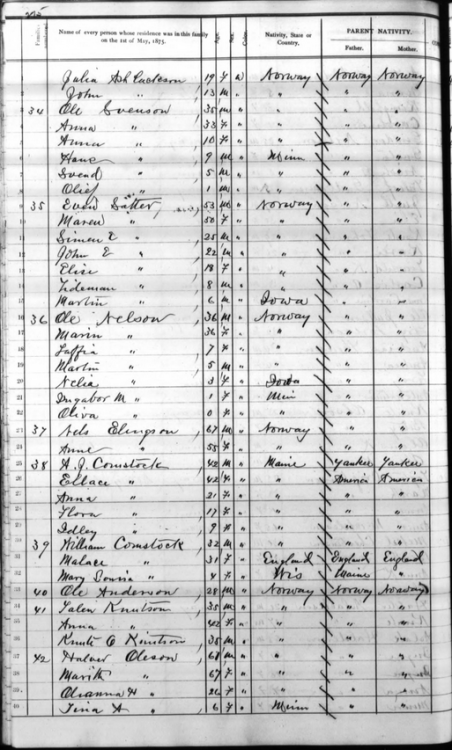 Name of every person whose residence was in this family on the 1st of May, 1875. Age. Sex. Color. Nativity, State or Country. PARENT NATIVITY. Father. Mother.
Julia 19 f w Norway Norway Norway
John " 13 m " " " "
34 Ole Evenson 35 m " " " "
Anna " 33 f " " " "
Anna " 10 f " " " "
Hans " 9 m " Minn " "
Svend " 5 m " " " "
Olief " 1 m " " " "
35 Even Sätter 53 m " Norway " "
Maren " 50 f " " " "
Simen E " 25 m " " " "
John E " 22 m " " " "
Elise " 18 f " " " "
Tideman " 8 m " " " "
Martin " 6 m " Iowa " "
36 Ole Nelson 36 m " Norway " "
Marin " 36 f " " " "
" 7 f " " " "
Martin " 5 m " " " "
Nelia " 3 f " Iowa " "
Ingabor M " 1 f " Minn " "
Oliva " 0 f " " " "
37 Nels Elingson 67 m " Norway " "
Anne " 55 f " " " "
38 A. J. Comstock 42 m " Maine Yankee Yankee
" 42 f " " America American
Anna " 21 f " " " "
Flora " 17 f " " " "
" 9 f " " " "
39 William Comstock 32 m " " " "
Malace " 31 f " England England England
Mary Louisa " 4 f " Wis Maine "
40 Ole Anderson 28 m " Norway Norway Norway
41 Knutson 35 m " " " "
Anna " 42 f " " " "
Knute O Knutson 38 m " " " "
42 Halver Oleson 68 m " " " "
Marith " 67 f " " " "
" 26 f " " " "
Tina A " 6 f " Minn " "